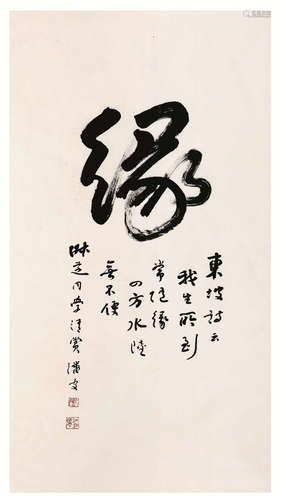 緣
東坡詩云
我生所到
常隨緣
四方水陸
無不便
同學清賞 潘受